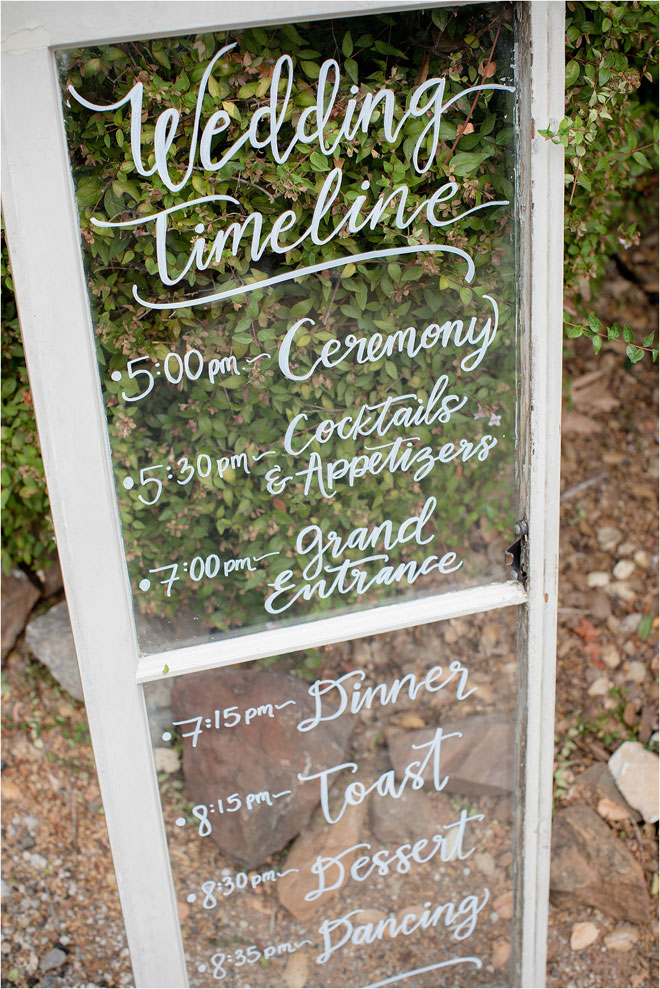 Wedding
Timeline
• 5:00 pm ~ Ceremony
• 5:30 pm ~ Cocktails
& Appetizers
• 7:00 pm ~ Grand
Entrance
• 7:15 pm ~ Dinner
• 8:15 pm ~ Toast
• 8:30 pm ~ Dessert
• 8:35 pm ~ Dancing